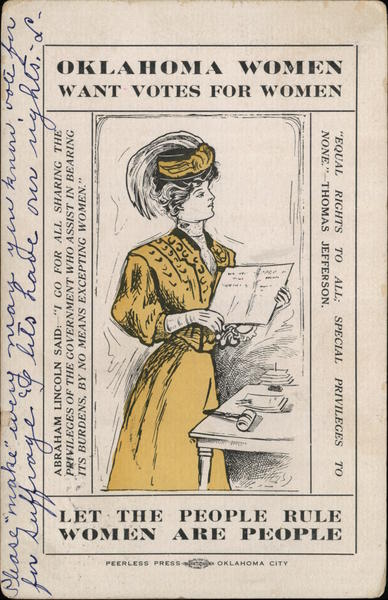 OKLAHOMA WOMEN
WANT VOTES FOR WOMEN
ABRAHAM LINCOLN SAID:—"I GO FOR ALL SHARING THE
PRIVILEGES OF THE GOVERNMENT WHO ASSIST IN BEARING
ITS BURDENS, BY NO MEANS EXCEPTING WOMEN."
"EQUAL RIGHTS TO ALL, SPECIAL PRIVILEGES TO
NONE."—THOMAS JEFFERSON.
LET THE PEOPLE RULE
WOMEN ARE PEOPLE
PEERLESS PRESS OKLAHOMA CITY
Please "make" every man you know, vote for
for Suffrage & lets have our rights.-L-